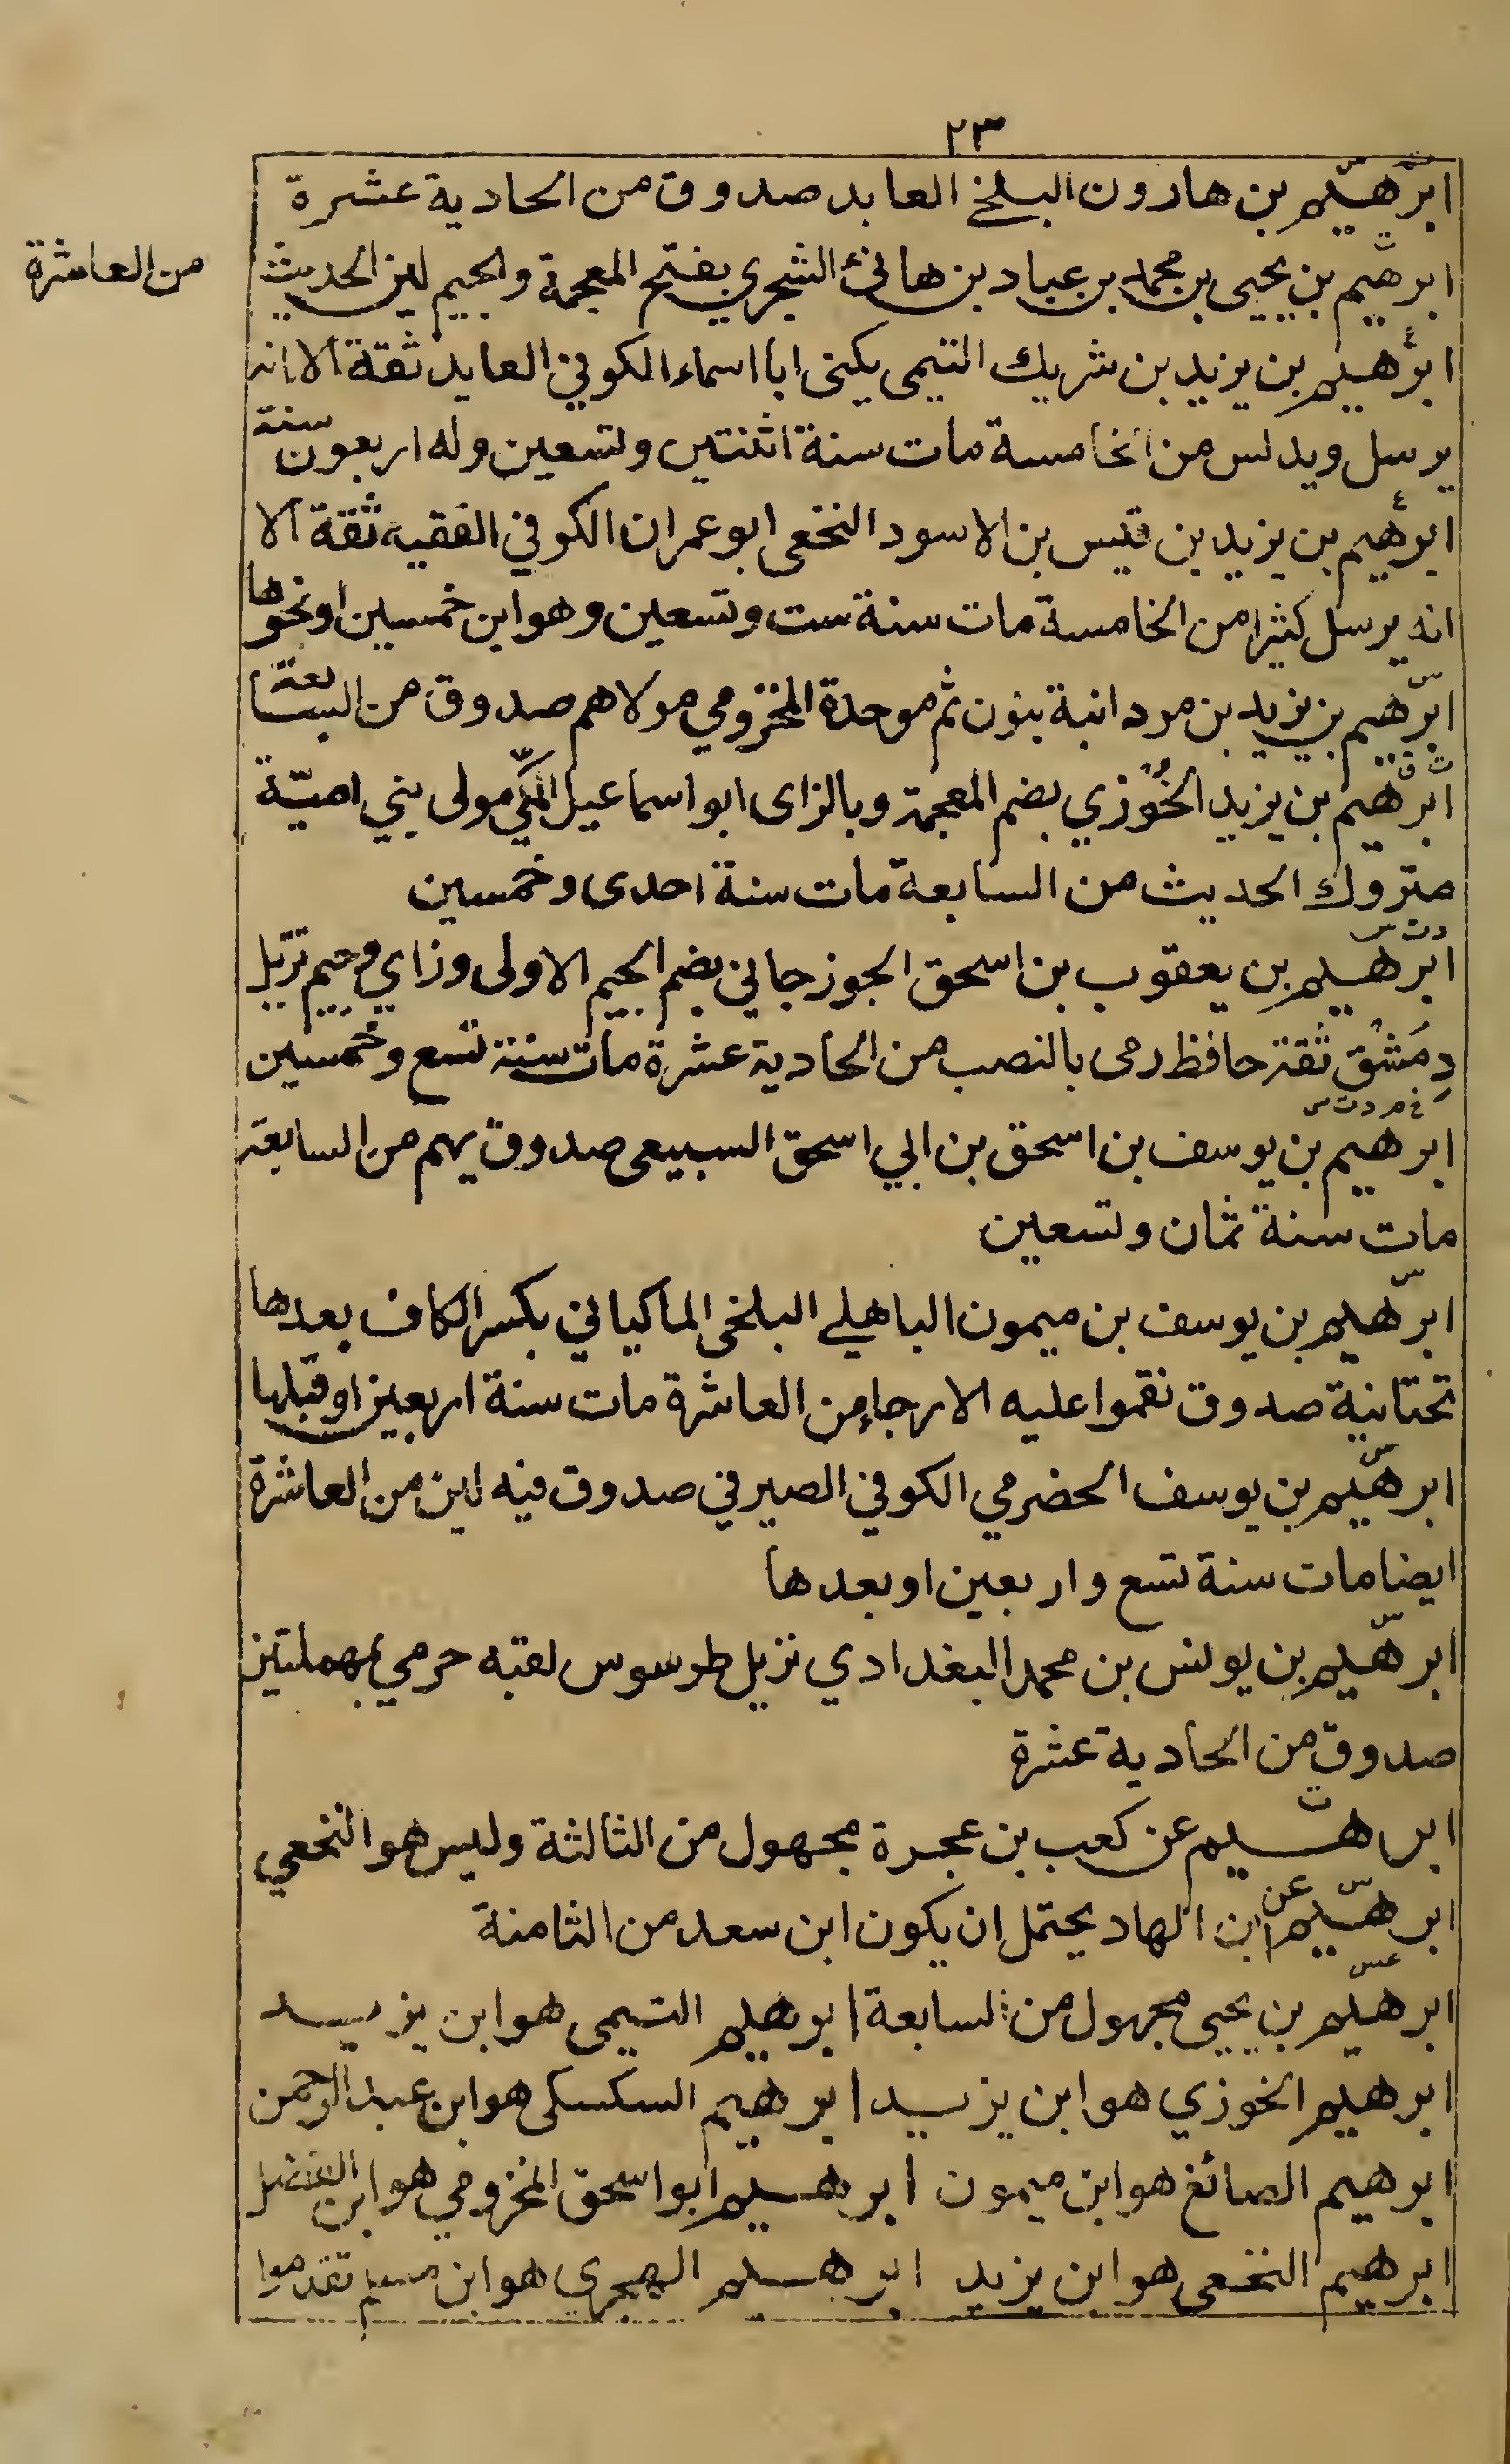 ٢٣
ابرهيم بن هارون البلخي العابد صدوق من الحادية عشرة
ابرهيم بن يحيى بن محمد بن عباد بن هانئ الشجري بفتح المعجمة والجيم لين الحديث
من العاشرة
ابرهيم بن يزيد بن شريك التيمى يكنى ابا اسماء الكوفي العابد ثقة الا انه
يرسل ويدلس من الخامسة مات سنة اثنتين وتسعين وله اربعون سنة
ابرهيم بن يزيد بن قيس بن الاسود النخعى ابو عمران الكوفي الفقيه ثقة الا
انه يرسل كثيرا من الخامسة مات سنة ست وتسعين وهو ابن خمسين او نحوها
س
ابرهيم بن يزيد بن مردانبة بنون ثم موحدة المخزومي مولاهم صدوق من السابعة
ت ق
ابرهيم بن يزيد الخُوزي بضم المعجمة وبالزاى ابو اسماعيل المكّي مولى بني اميّة
متروك الحديث من السابعة مات سنة احدى وخمسين
د ت س
ابرهيم بن يعقوب بن اسحق الجوزجاني بضم الجيم الاولى وزاي وجيم نزيل
دِمَشْق ثقة حافظ رمى بالنصب من الحادية عشرة مات سنة تسع وخمسين
خ م د ت س
ابرهيم بن يوسف بن اسحق بن ابي اسحق السبيعى صدوق يهم من السابعة
مات سنة ثمان وتسعين
س
ابرهيم بن يوسف بن ميمون الباهلي البلخى الماكياني بكسر الكاف بعدها
تحتانية صدوق نقموا عليه الارجاء من العاشرة مات سنة اربعين او قبلها
س
ابرهيم بن يوسف الحضرمي الكوفي الصيرفي صدوق فيه لين من العاشرة
ايضا مات سنة تسع واربعين او بعدها
س
ابرهيم بن يونس بن محمد البغدادي نزيل طرسوس لقبه حرمي بمهملتين
صدوق من الحادية عشرة
ت
ابراهيم عن كعب بن عجرة مجهول من الثالثة وليس هو النخعي
س
ابرهيم عن ابن الهاد يحتمل ان يكون ابن سعد من الثامنة
عس
ابرهيم بن يحيى مجهول من السابعة ابرهيم التيمى هو ابن يزيد
ابرهيم الخوزي هو ابن يزيد ابرهيم السكسكى هو ابن عبد الرحمن
ابرهيم الصائغ هو ابن ميمون ابرهيم ابو اسحق المخزومي هو ابن الفضل
ابرهيم النخعى هو ابن يزيد ابرهيم الهجري هو ابن مسلم تقدموا